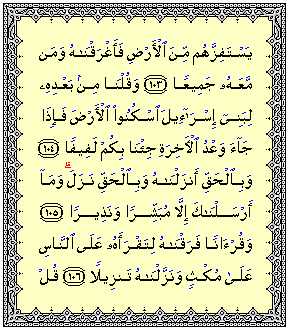 يَسْتَفِزَّهُم مِّنَ ٱلْأَرْضِ فَأَغْرَقْنَٰهُ وَمَن
مَّعَهُۥ جَمِيعًا ١٠٣ وَقُلْنَا مِنۢ بَعْدِهِۦ
لِبَنِىٓ إِسْرَٰٓءِيلَ ٱسْكُنُوا۟ ٱلْأَرْضَ فَإِذَا
جَآءَ وَعْدُ ٱلْءَاخِرَةِ جِئْنَا بِكُمْ لَفِيفًا ١٠٤
وَبِٱلْحَقِّ أَنزَلْنَٰهُ وَبِٱلْحَقِّ نَزَلَ ۗ وَمَآ
أَرْسَلْنَٰكَ إِلَّا مُبَشِّرًا وَنَذِيرًا ١٠٥
وَقُرْءَانًا فَرَقْنَٰهُ لِتَقْرَأَهُۥ عَلَى ٱلنَّاسِ
عَلَىٰ مُكْثٍ وَنَزَّلْنَٰهُ تَنزِيلًا ١٠٦ قُلْ